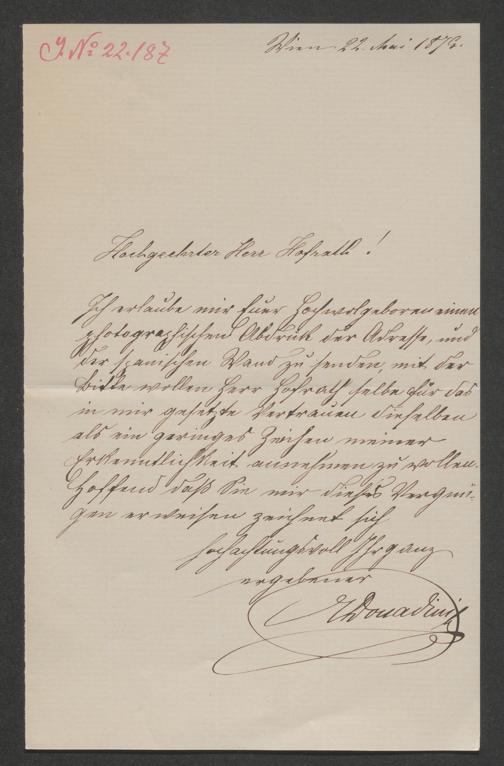 J. No 22.187
Wien 22. Mai 1879.
Hochgeehrter Herr Hofrath!
Ich erlaube mir Euer Hochwolgeboren einen
photographischen Abdruck der Adresse, und
der spanischen Wand zu senden, mit der
Bitte wollen Herr Hofrath selbe für das
in mir gesetzte Vertrauen dieselben
als ein geringes Zeichen meiner
Erkenntlichkeit annehmen zu wollen.
Hoffend daß Sie mir dieses Vergnü-
gen erweisen zeichnet sich
hochachtungsvoll Ihr ganz
ergebener
Donadini